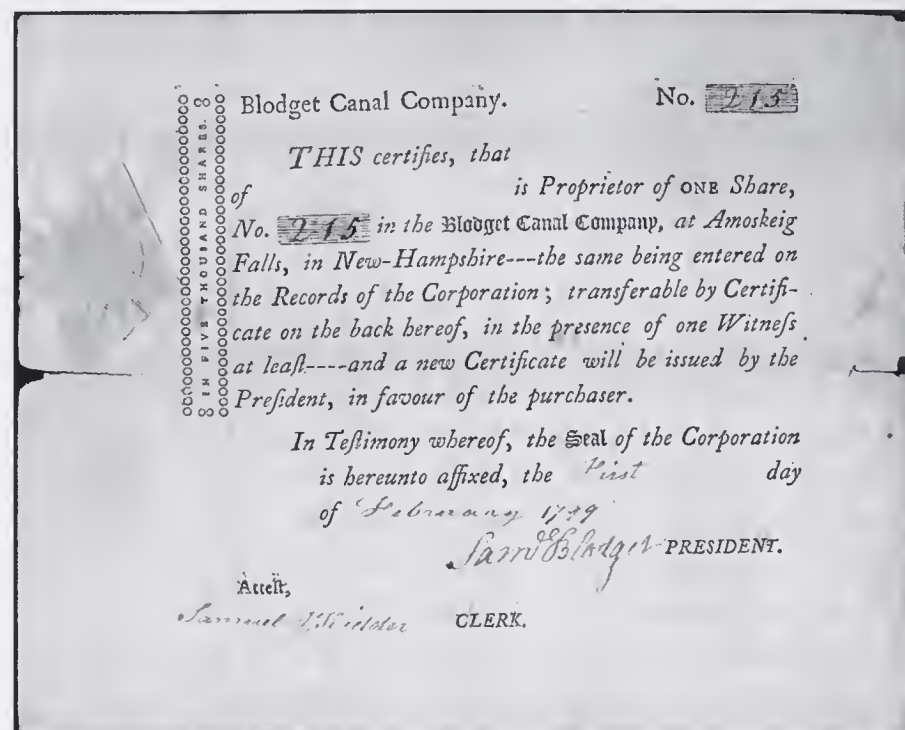 Blodget Canal Company. No. 215
IN FIVE THOUSAND SHARES.
THIS certifies, that
of is Proprietor of ONE Share,
No. 215 in the Blodget Canal Company, at Amoskeig
Falls, in New-Hampshire---the same being entered on
the Records of the Corporation; transferable by Certifi-
cate on the back hereof, in the presence of one Witneſs
at leaſt----and a new Certificate will be issued by the
Preſident, in favour of the purchaser.
In Teſtimony whereof, the Seal of the Corporation
is hereunto affixed, the First day
of February 1799
Saml Blodget PRESIDENT.
Atteſt,
Samuel CLERK.